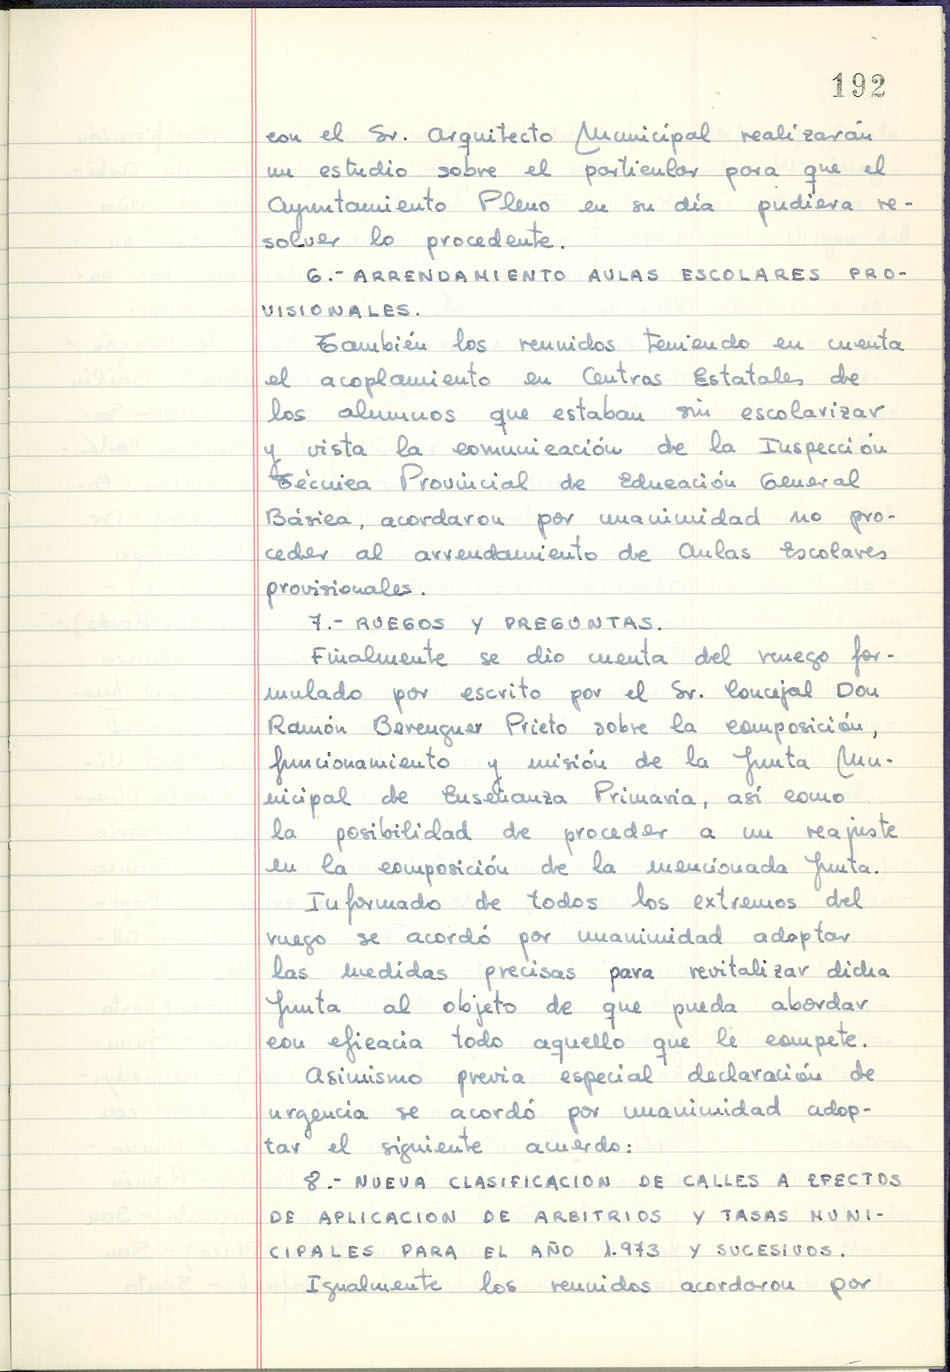 192
con el Sr. Arquitecto Municipal realizarán
un estudio sobre el particular para que el
Ayuntamiento Pleno en su día pudiera re-
solver lo procedente.
6.- ARRENDAMIENTO AULAS ESCOLARES PRO-
VISIONALES.
También los reunidos teniendo en cuenta
el acoplamiento en Centros Estatales de
los alumnos que estaban sin escolarizar
y vista la comunicación de la Inspección
Técnica Provincial de Educación General
Básica, acordaron por unanimidad no pro-
ceder al arrendamiento de Aulas Escolares
provisionales.
7.- RUEGOS Y PREGUNTAS.
Finalmente se dio cuenta del ruego for-
mulado por escrito por el Sr. Concejal Don
Ramón Berenguer Prieto sobre la composición,
funcionamiento y misión de la Junta Mu-
nicipal de Enseñanza Primaria, así como
la posibilidad de proceder a un reajuste
en la composición de la mencionada Junta.
Informado de todos los extremos del
ruego se acordó por unanimidad adoptar
las medidas precisas para revitalizar dicha
Junta al objeto de que pueda abordar
con eficacia todo aquello que le compete.
Asimismo previa especial declaración de
urgencia se acordó por unanimidad adop-
tar el siguiente acuerdo:
8.- NUEVA CLASIFICACION DE CALLES A EFECTOS
DE APLICACION DE ARBITRIOS Y TASAS MUNI-
CIPALES PARA EL AÑO 1.973 Y SUCESIVOS.
Igualmente los reunidos acordaron por